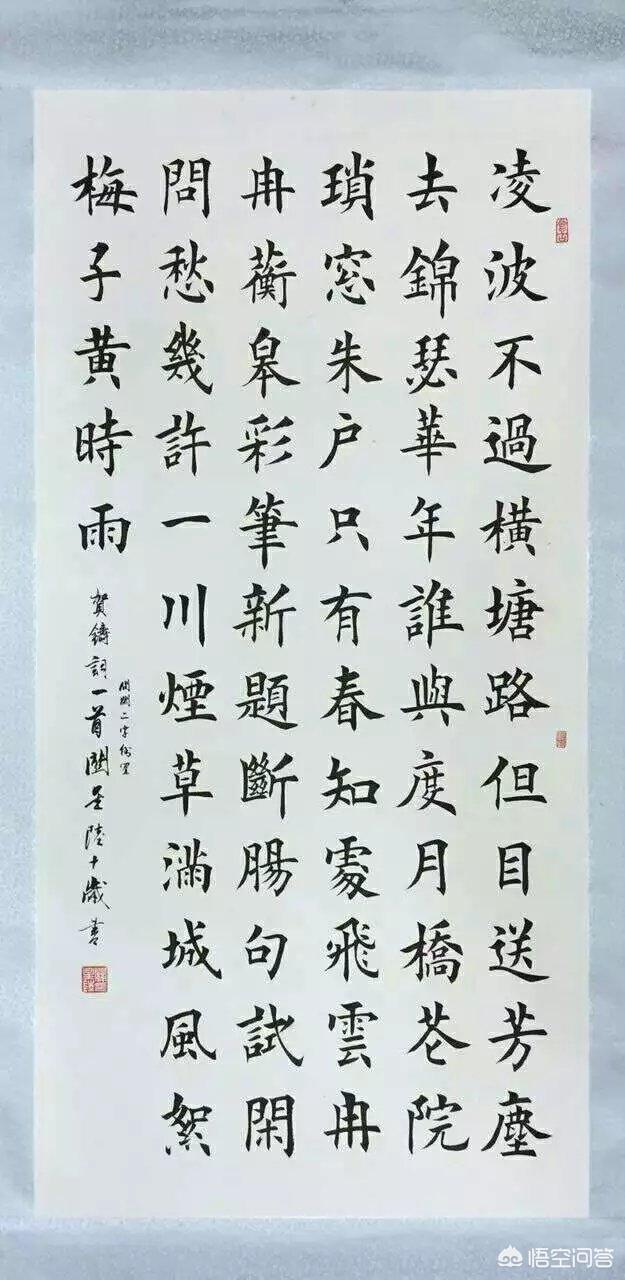 凌波不過橫塘路但目送芳塵
去錦瑟華年誰與度月橋芲院
瑣窓朱户只有春知處飛雲冉
冉蘅皋彩筆新題斷腸句試閑
問愁幾許一川煙草滿城風絮
梅子黄時雨
問閑二字倒置
賀鑄詞一首 陸十歲書
悟空问答